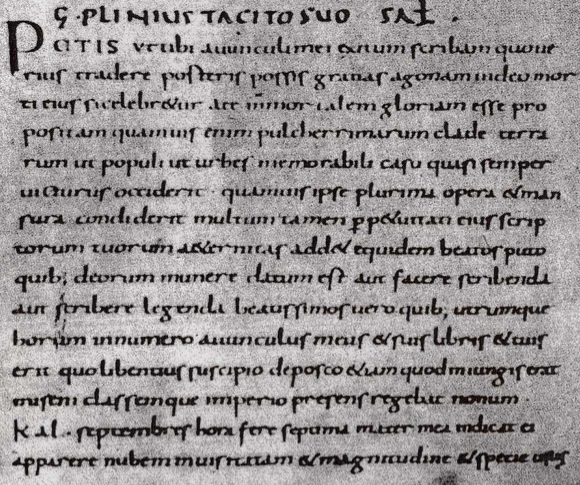 G·PLINIUS TACITO SUO SAL̄.
PETIS ut tibi auunculi mei exitum scribam quo ue
rius tradere posteris possis gratias ago nam uideo mor
ti eius si celebretur a te inmortalem gloriam esse pro
positam quamuis enim pulcherrimarum clade terra
rum ut populi ut urbes memorabili casu quasi semper
uicturus occiderit · quamuis ipse plurima opera & man
sura condiderit multum tamen ꝑp&uitati eius scrip
torum tuorum a&ernitas add& equidem beatos puto
quib; deorum munere datum est aut facere scribenda
aut scribere legenda beatissimos uero quib; utrumque
horum in numero auunculus meus & suis libris & tuis
erit quo libentius suscipio deposco &iam quod iniungis erat
miseni classemque imperio presens regebat nonum ·
kal · septembres hora fere septima mater mea indicat ei
apparere nubem inusitatam & magnitudine & specie usus